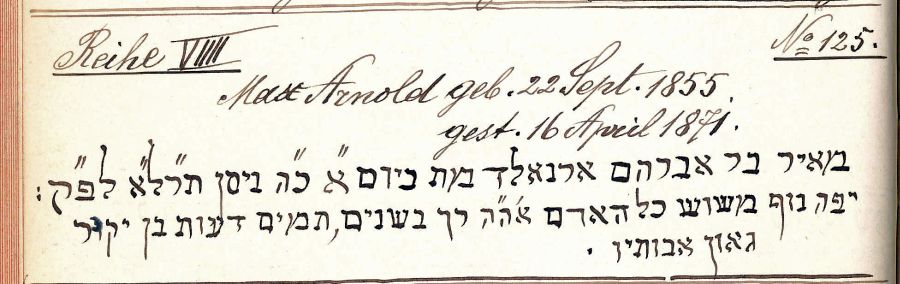 Reihe VIIII
№ 125.
Max Arnold geb. 22 Sept. 1855.
gest. 16 April 1871.
מאיר בר אברהם ארנאלד מת ביום א׳ כ״ה ניסן תרל״א לפ״ק:
יפה נוף משוש כל האדם רך בשנים, תמים דעות בן יקיר
גאון אבותיו.